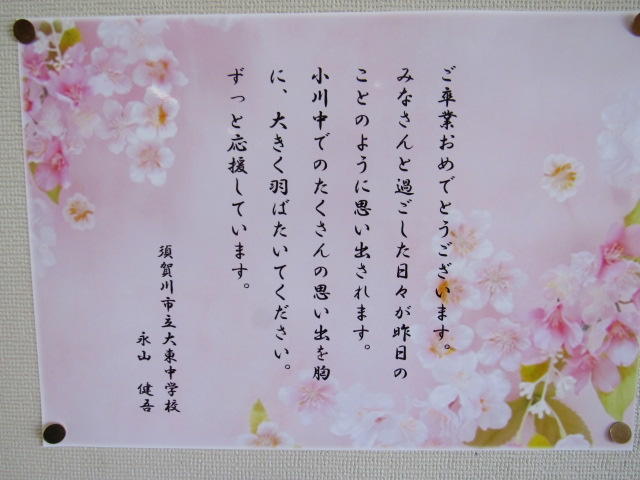 ご卒業おめでとうございます。
みなさんと過ごした日々が昨日の
ことのように思い出されます。
小川中でのたくさんの思い出を胸
に、大きく羽ばたいてください。
ずっと応援しています。
須賀川市立大東中学校
永山　健吾